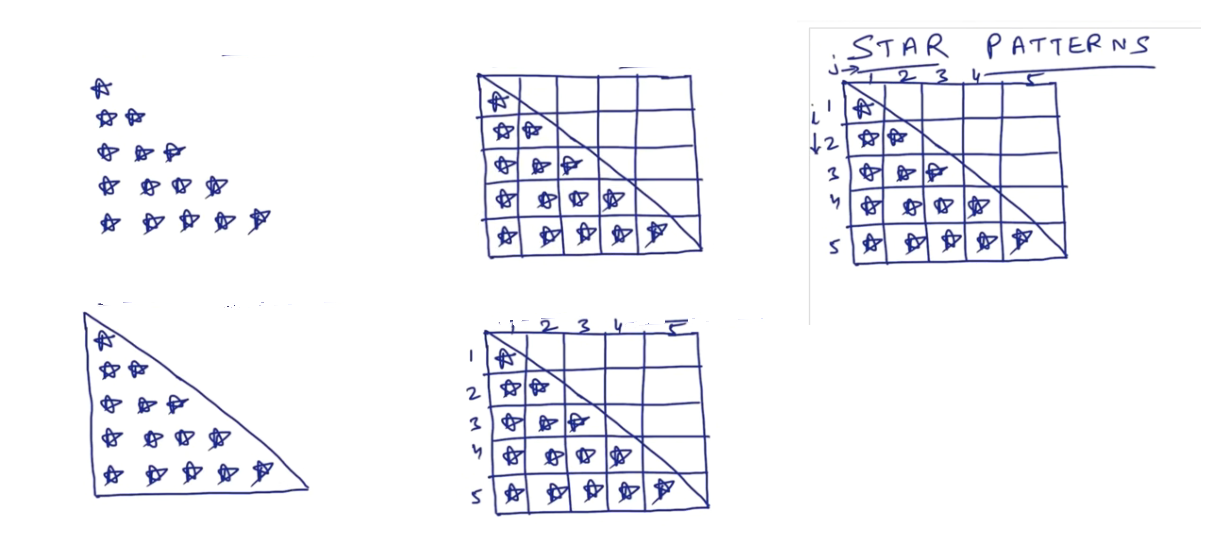 STAR PATTERNS
j→ 1 2 3 4 5
i 1
↓ 2
3
4
5
1 2 3 4 5
1
2
3
4
5